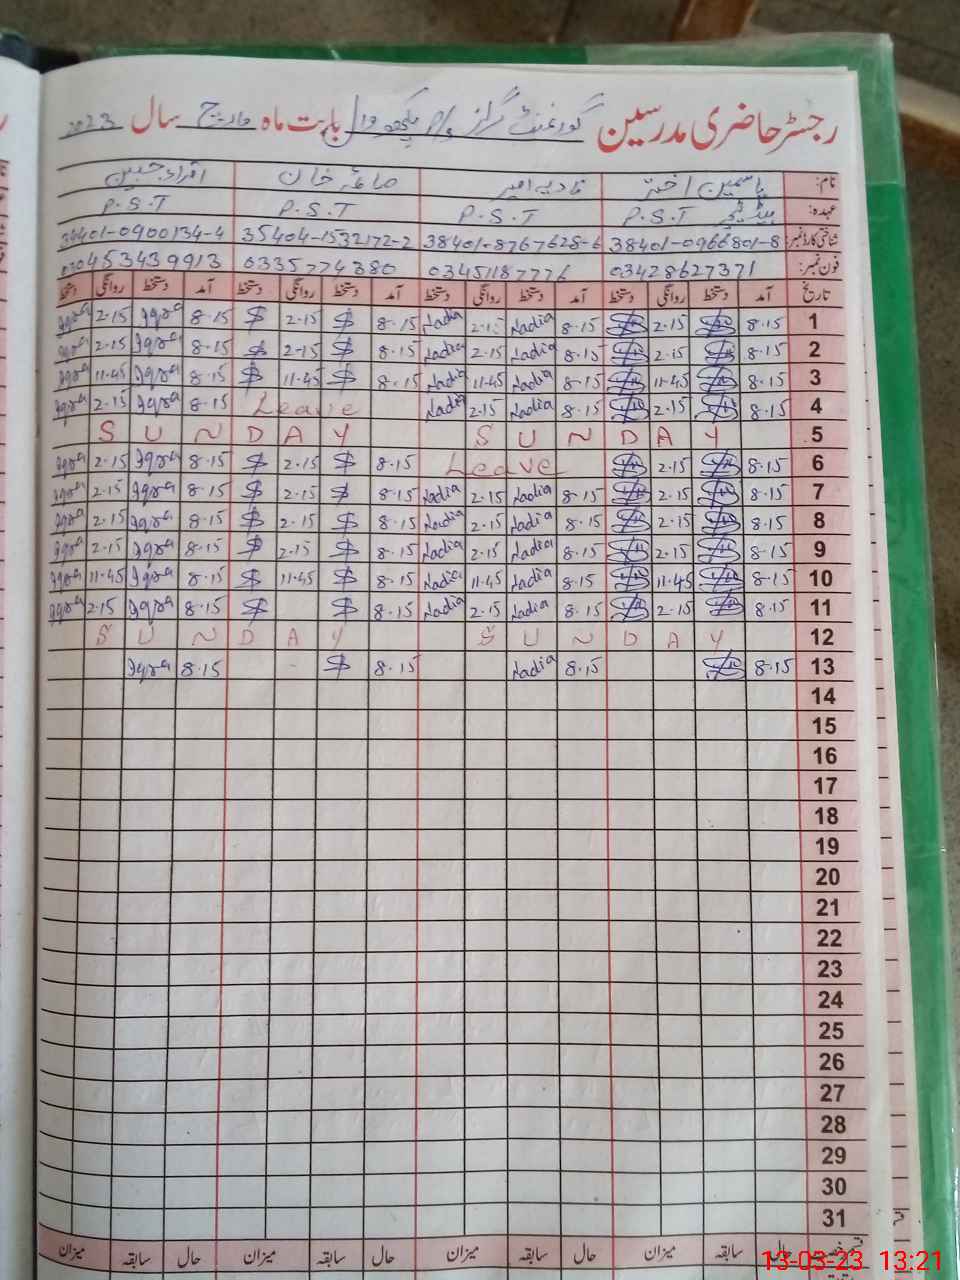 رجسٹر حاضری مدرسین گورنمنٹ گرلز بابت ماہ مارچ سال 2023
نام: یاسمین اختر نادیہ امیر صائمہ خان اقراء جبین
عہدہ: P.S.T ہیڈ ٹیچر P.S.T P.S.T P.S.T
شناختی کارڈ نمبر: 38401-0966801-8 38401-8767628-6 35404-1532172-2 38401-0900134-4
فون نمبر: 03428627371 03451187776 03357774380 03045343 9913
تاریخ آمد دستخط روانگی دستخط آمد دستخط روانگی دستخط آمد دستخط روانگی دستخط آمد دستخط روانگی دستخط
1 8.15 2.15 8.15 Nadia 2.15 Nadia 8.15 $ 2.15 $ 8.15 Iqra 2.15 Iqra
2 8.15 2.15 8.15 Nadia 2.15 Nadia 8.15 $ 2.15 $ 8.15 Iqra 2.15 Iqra
3 8.15 11.45 8.15 Nadia 11.45 Nadia 8.15 $ 11.45 $ 8.15 Iqra 11.45 Iqra
4 8.15 2.15 8.15 Nadia 2.15 Nadia Leave 8.15 Iqra 2.15 Iqra
5 SUNDAY SUNDAY
6 8.15 2.15 Leave 8.15 $ 2.15 $ 8.15 Iqra 2.15 Iqra
7 8.15 2.15 8.15 Nadia 2.15 Nadia 8.15 $ 2.15 $ 8.15 Iqra 2.15 Iqra
8 8.15 2.15 8.15 Nadia 2.15 Nadia 8.15 $ 2.15 $ 8.15 Iqra 2.15 Iqra
9 8.15 2.15 8.15 Nadia 2.15 Nadia 8.15 $ 2.15 $ 8.15 Iqra 2.15 Iqra
10 8.15 11.45 8.15 Nadia 11.45 Nadia 8.15 $ 11.45 $ 8.15 Iqra 11.45 Iqra
11 8.15 2.15 8.15 Nadia 2.15 Nadia 8.15 $ $ 8.15 Iqra 2.15 Iqra
12 SUNDAY SUNDAY
13 8.15 8.15 Nadia 8.15 $ 8.15 Iqra
14
15
16
17
18
19
20
21
22
23
24
25
26
27
28
29
30
31
حال سابقہ میزان حال سابقہ میزان حال سابقہ میزان حال سابقہ میزان
13-03-23 13:21